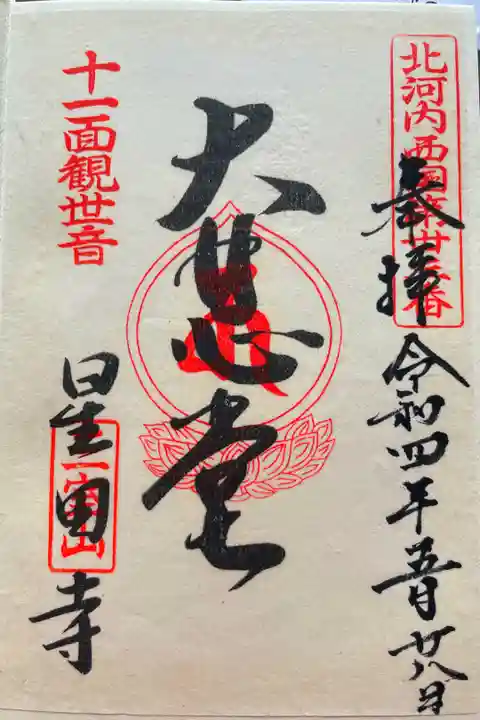 北河内西国第廿番
奉拝 令和四年五月廿八日
大悲堂
十一面観世音
星田寺